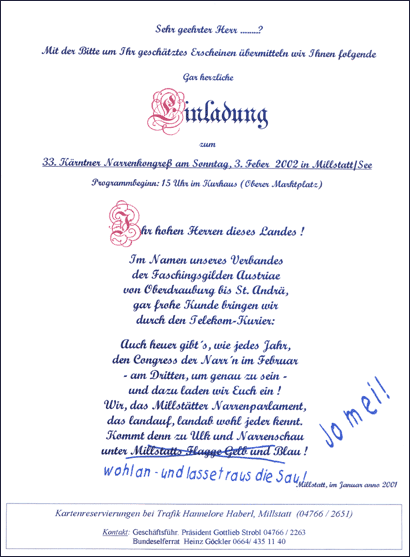 Sehr geehrter Herr .........?
Mit der Bitte um Ihr geschätztes Erscheinen übermitteln wir Ihnen folgende
Gar herzliche
Einladung
zum
33. Kärntner Narrenkongreß am Sonntag, 3. Feber 2002 in Millstatt/See
Programmbeginn: 15 Uhr im Kurhaus (Oberer Marktplatz)
Ihr hohen Herren dieses Landes !
Im Namen unseres Verbandes
der Faschingsgilden Austriae
von Oberdrauburg bis St. Andrä,
gar frohe Kunde bringen wir
durch den Telekom-Kurier:
Auch heuer gibt's, wie jedes Jahr,
den Congress der Narr'n im Februar
- am Dritten, um genau zu sein -
und dazu laden wir Euch ein !
Wir, das Millstätter Narrenparlament,
das landauf, landab wohl jeder kennt.
Kommt denn zu Ulk und Narrenschau
unter Millstatts Flagge Gelb und Blau !
wohlan - und lasset raus die Sau!
Jo mei!
Millstatt, im Januar anno 2001
Kartenreservierungen bei Trafik Hannelore Haberl, Millstatt (04766 / 2651)
Kontakt: Geschäftsführ. Präsident Gottlieb Strobl 04766 / 2263
Bundeselferrat Heinz Göckler 0664/ 435 11 40